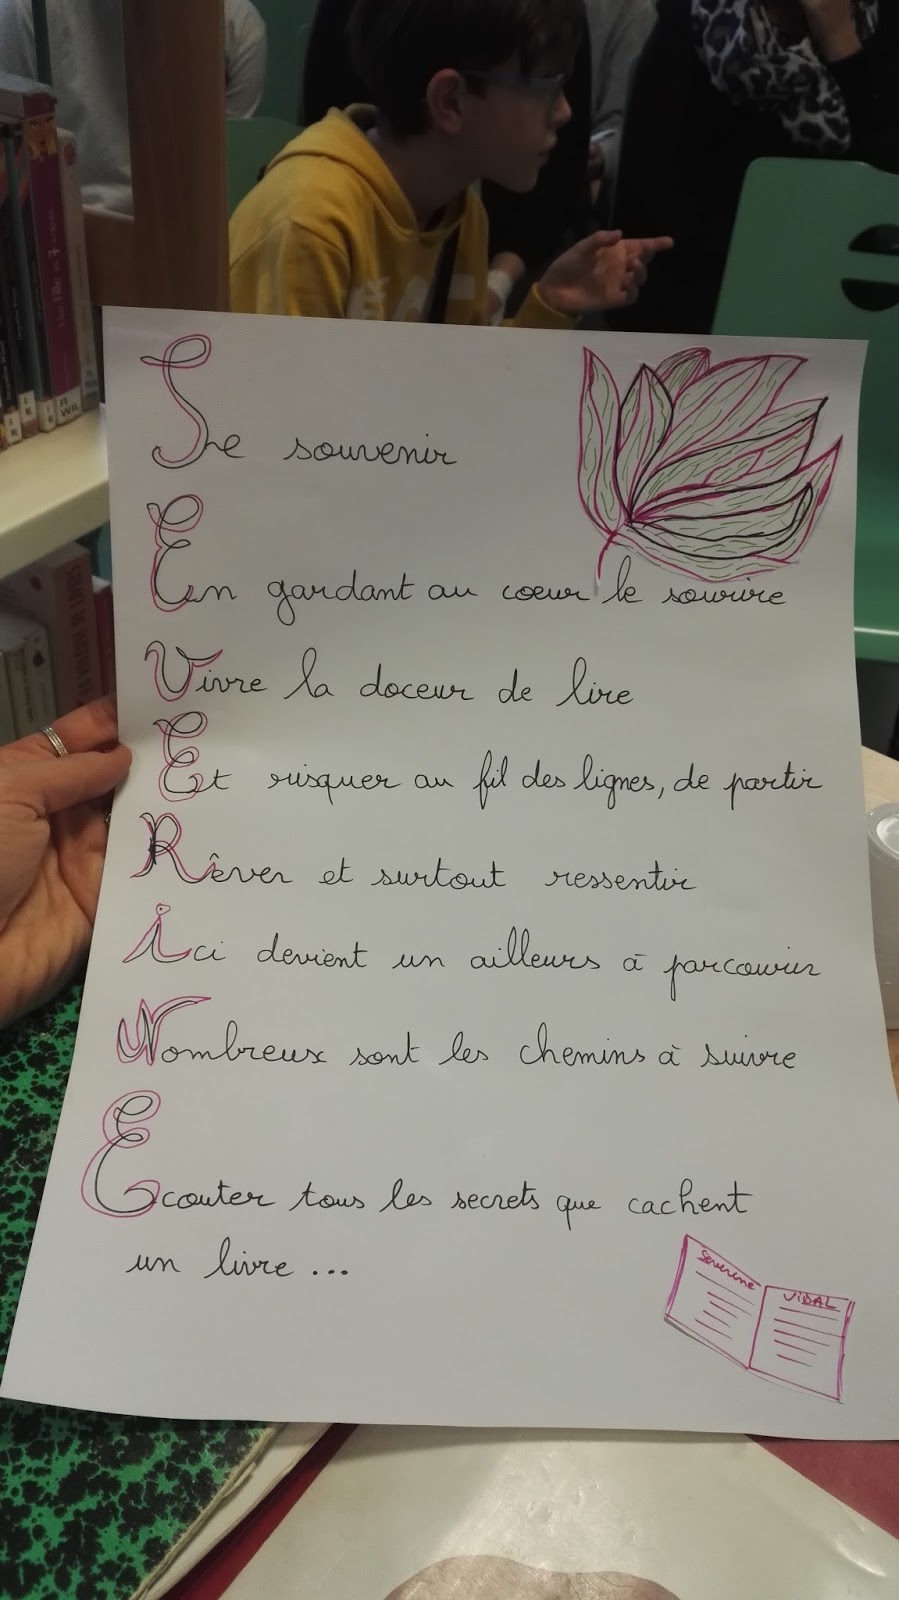 Se souvenir
En gardant au coeur le sourire
Vivre la doceur de lire
Et risquer au fil des lignes, de partir
Rêver et surtout ressentir
ici devient un ailleurs à parcourir
Nombreux sont les chemins à suivre
Ecouter tous les secrets que cachent
un livre ...
Séverine VIDAL
R
WIL